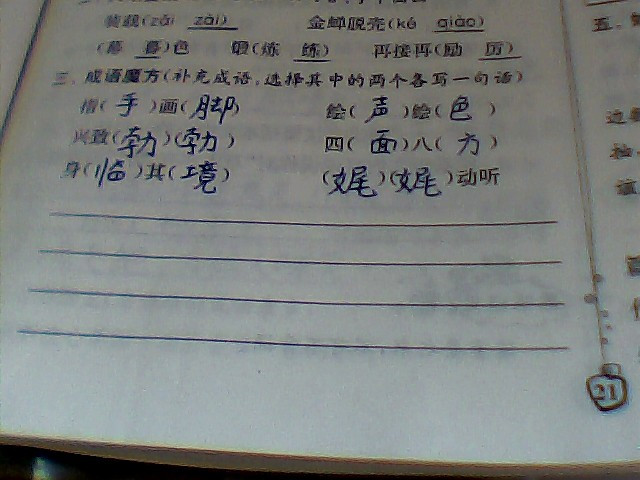 装载(zǎi zài) 金蝉脱壳(ké qiào)
(暮 暮)色 锻(炼 练) 再接再(励 厉)
三、成语魔方(补充成语,选择其中的两个各写一句话)
指(手)画(脚) 绘(声)绘(色)
兴致(勃)(勃) 四(面)八(方)
身(临)其(境) (娓)(娓)动听
五、
边
独
21